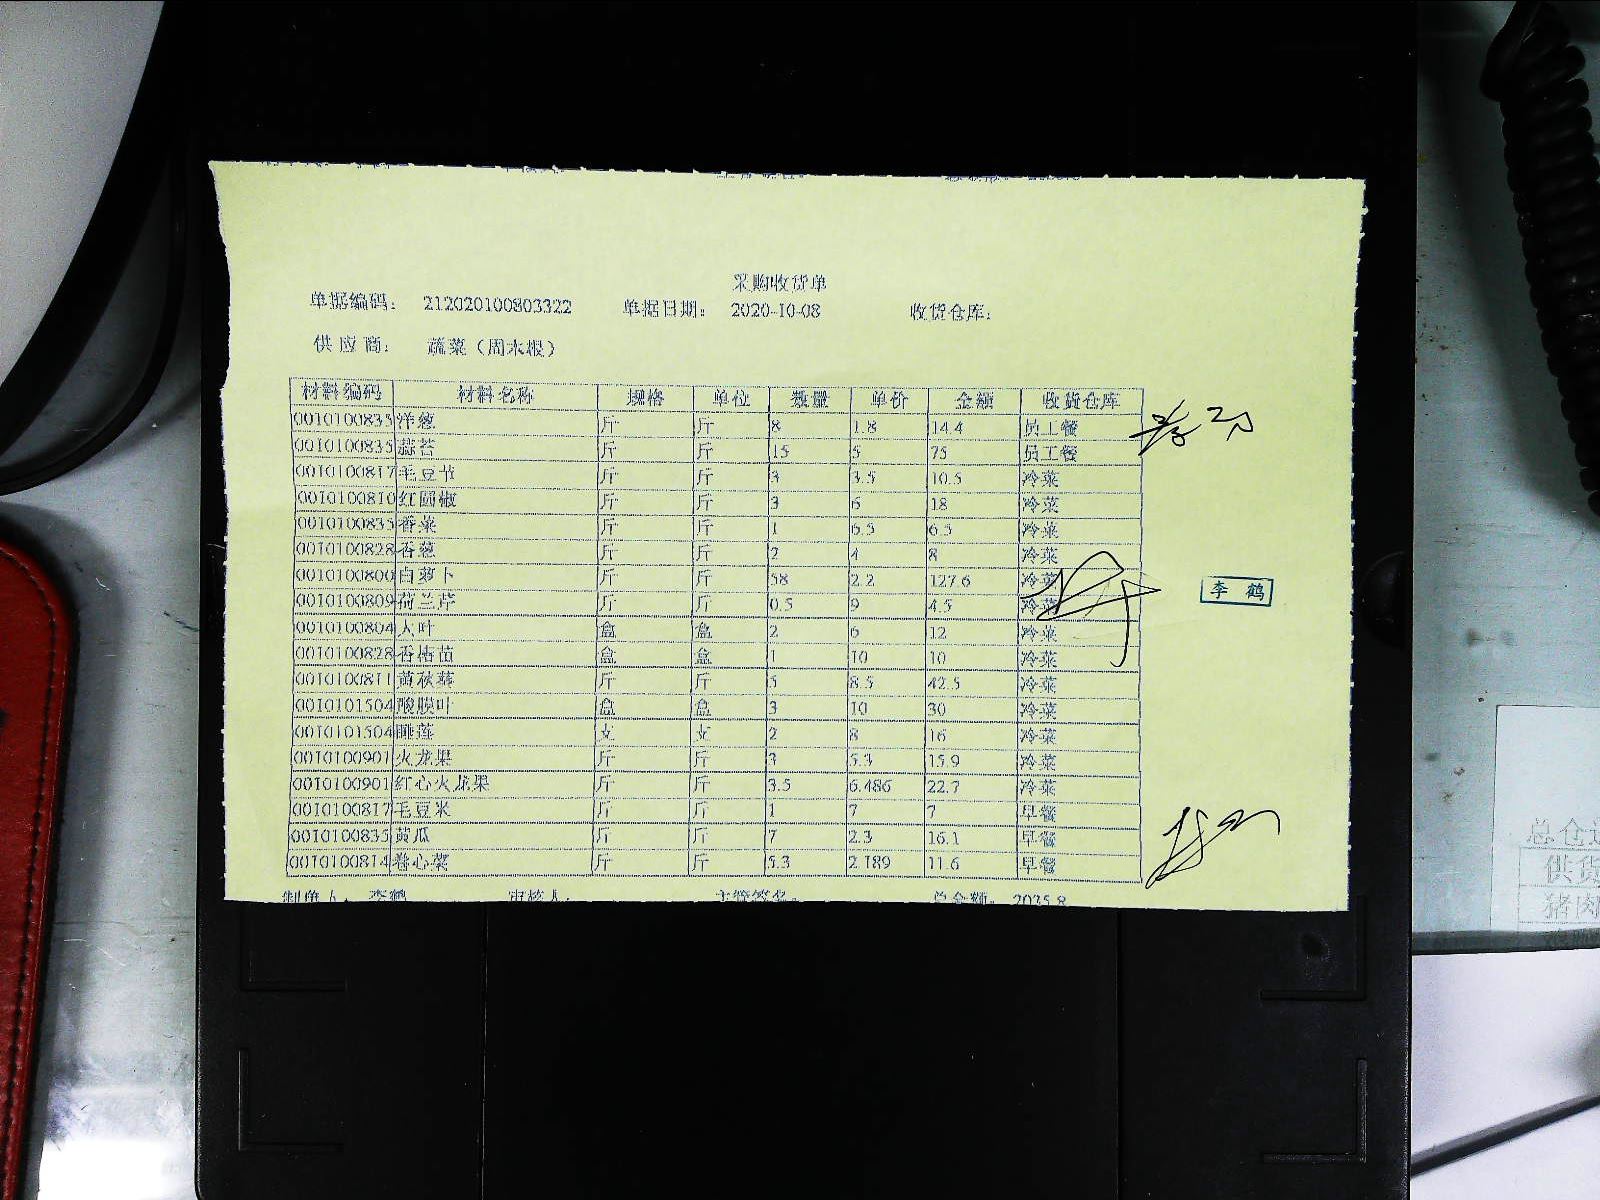 采购收货单
单据编码： 212020100803322 单据日期： 2020-10-08 收货仓库：
供 应 商： 蔬菜（周末根）
材料编码 材料名称 规格 单位 数量 单价 金额 收货仓库
0010100835 洋葱 斤 斤 8 1.8 14.4 员工餐
0010100835 蒜苔 斤 斤 15 5 75 员工餐
0010100817 毛豆节 斤 斤 3 3.5 10.5 冷菜
0010100810 红圆椒 斤 斤 3 6 18 冷菜
0010100835 香菜 斤 斤 1 6.5 6.5 冷菜
0010100828 香葱 斤 斤 2 4 8 冷菜
0010100800 白萝卜 斤 斤 58 2.2 127.6 冷菜
0010100809 荷兰芹 斤 斤 0.5 9 4.5 冷菜
李 鹤
0010100804 大叶 盒 盒 2 6 12 冷菜
0010100828 香椿苗 盒 盒 1 10 10 冷菜
0010100811 黄秋葵 斤 斤 5 8.5 42.5 冷菜
0010101504 酸膜叶 盒 盒 3 10 30 冷菜
0010101504 睡莲 支 支 2 8 16 冷菜
0010100901 火龙果 斤 斤 3 5.3 15.9 冷菜
0010100901 红心火龙果 斤 斤 3.5 6.486 22.7 冷菜
0010100817 毛豆米 斤 斤 1 7 7 早餐
0010100835 黄瓜 斤 斤 7 2.3 16.1 早餐
0010100814 卷心菜 斤 斤 5.3 2.189 11.6 早餐
制单人： 李鹤 审核人： 主管签名： 总金额： 2035.8
总仓
供货
猪肉